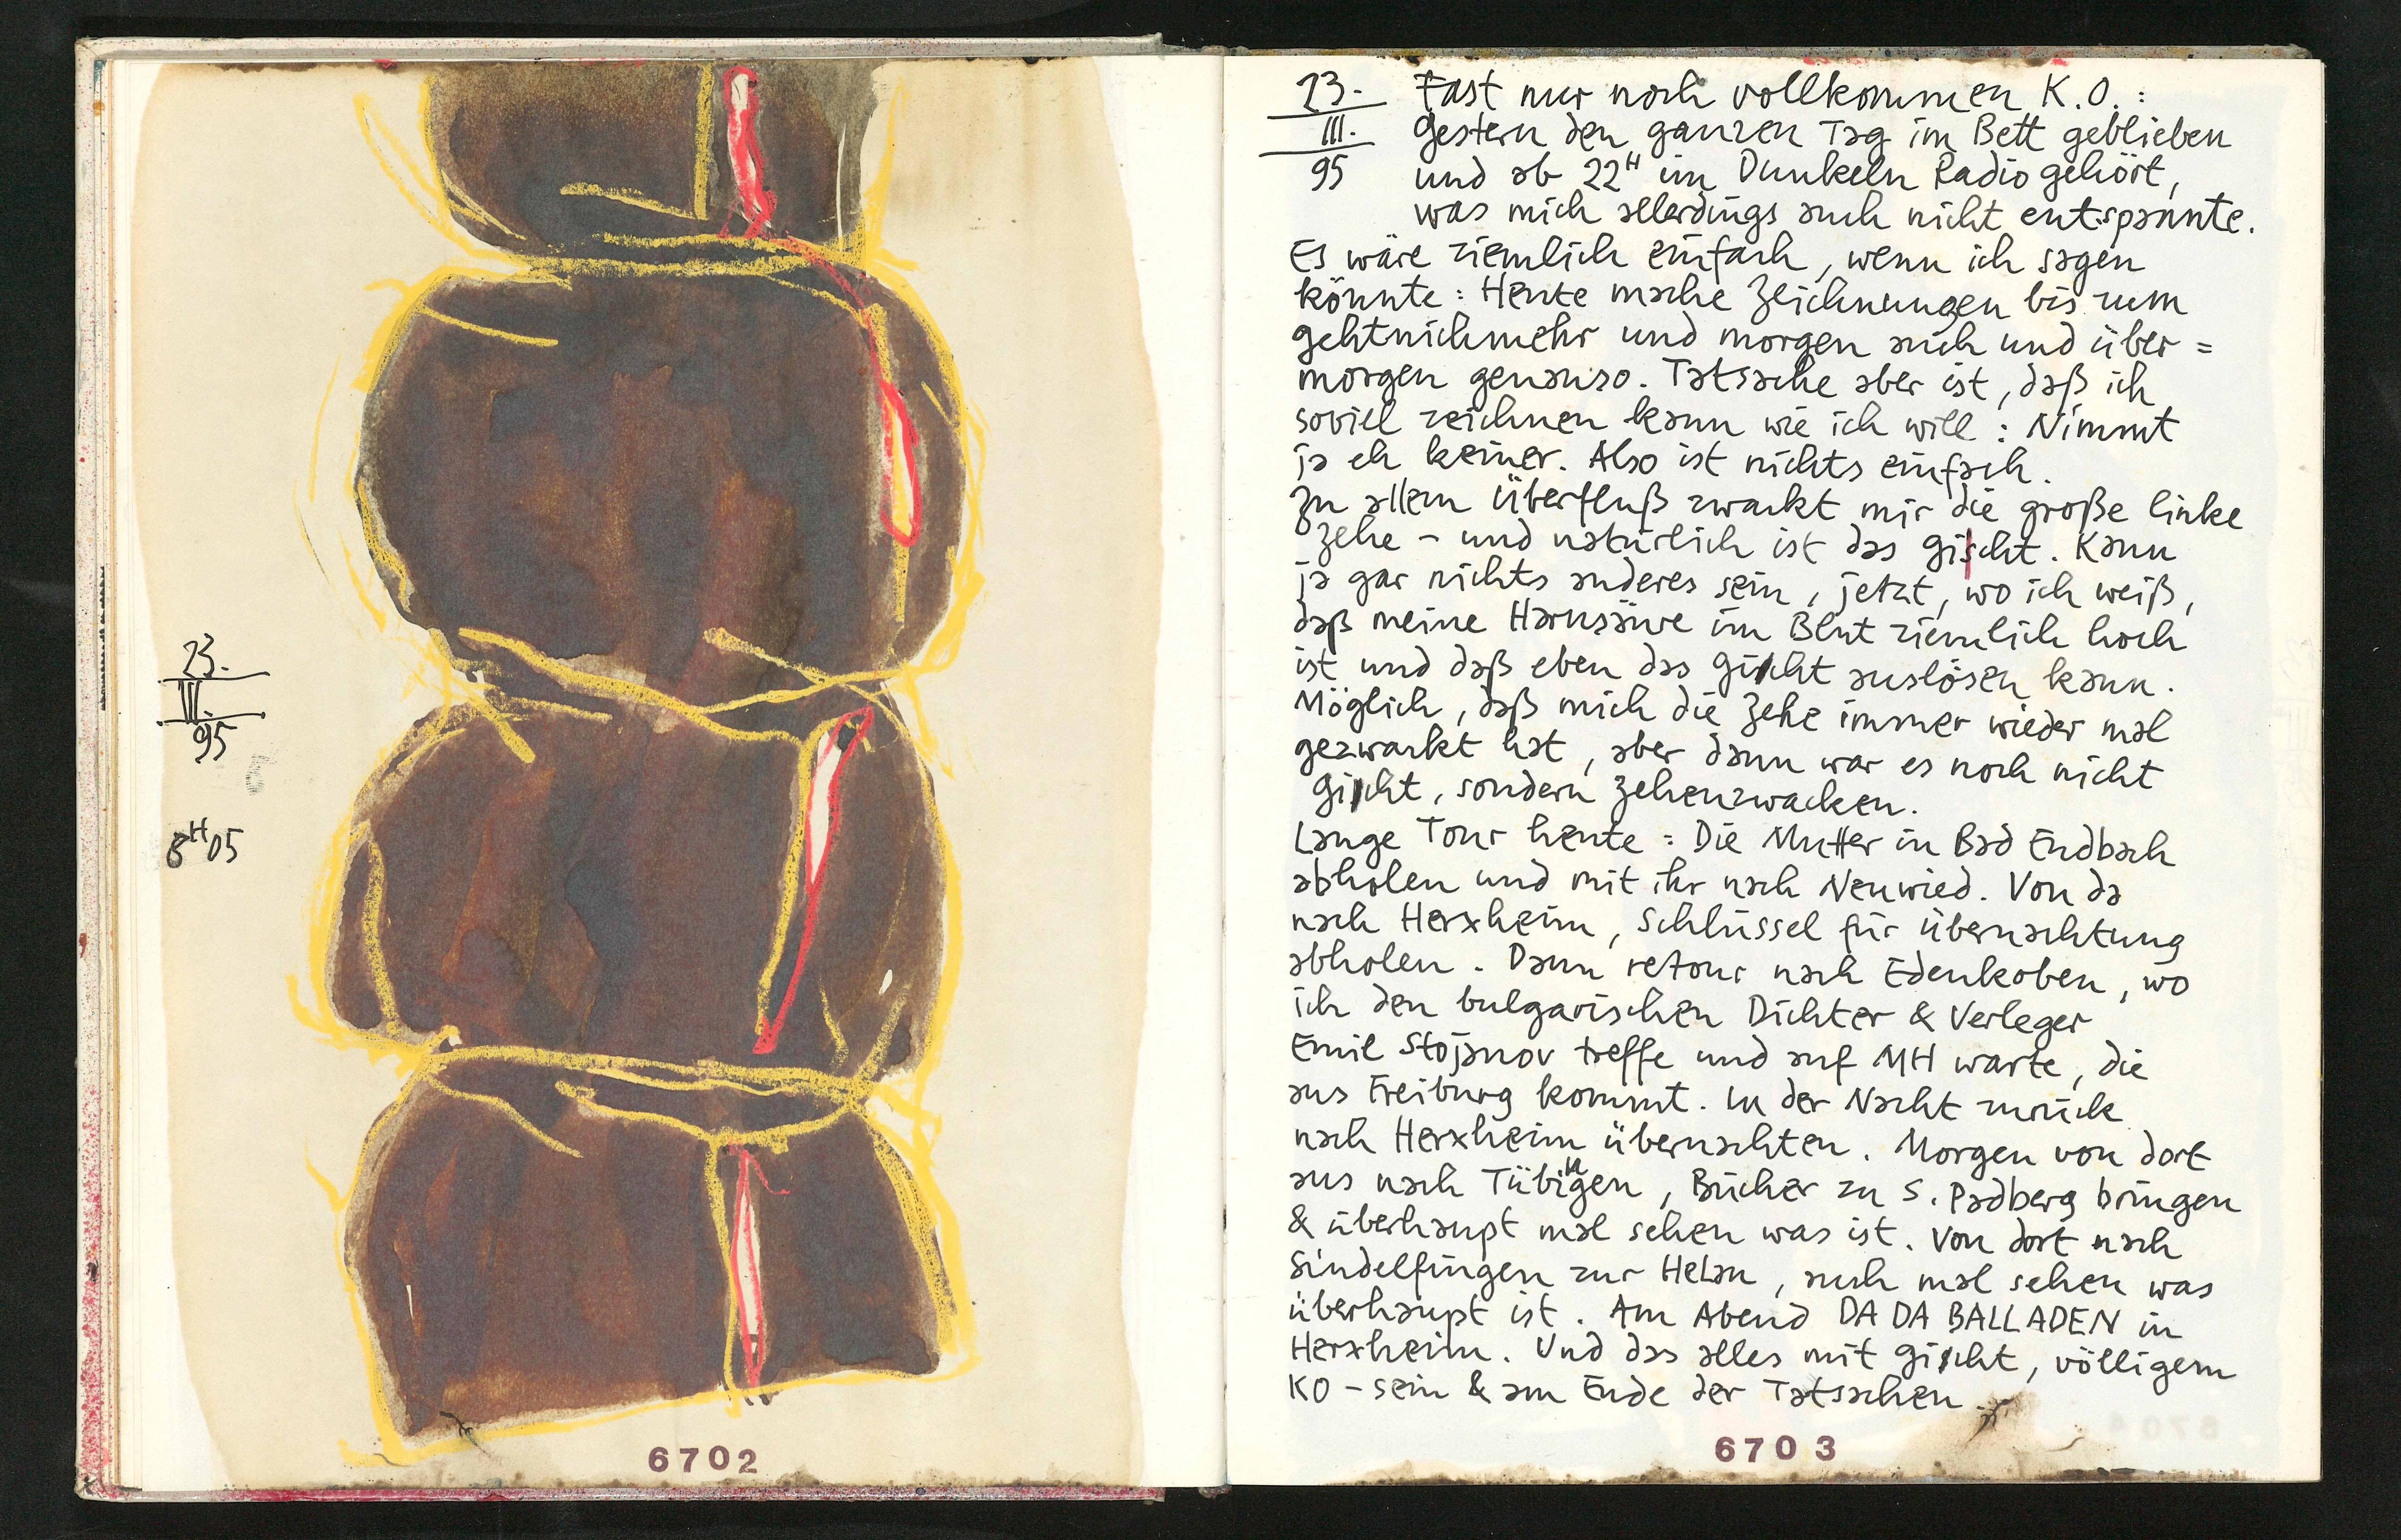 23.
III.
95
8H05
6702
23.
III.
95
Fast nur noch vollkommen K.O.:
Gestern den ganzen Tag im Bett geblieben
und ab 22H im Dunkeln Radio gehört,
was mich allerdings auch nicht entspannte.
Es wäre ziemlich einfach, wenn ich sagen
könnte: Heute mache Zeichnungen bis zum
gehtnichmehr und morgen auch und über=
morgen genauso. Tatsache aber ist, daß ich
soviel zeichnen kann wie ich will: Nimmt
ja eh keiner. Also ist nichts einfach.
Zu allem Überfluß zwackt mir die große linke
Zehe - und natürlich ist das Gischt. Kann
ja gar nichts anderes sein, jetzt, wo ich weiß,
daß meine Harnsäure im Blut ziemlich hoch
ist und daß eben das Gicht auslösen kann.
Möglich, daß mich die Zehe immer wieder mal
gezwackt hat, aber dann war es noch nicht
Gicht, sondern Zehenzwacken.
Lange Tour heute: Die Mutter in Bad Endbach
abholen und mit ihr nach Neuwied. Von da
nach Herxheim, Schlüssel für Übernachtung
abholen. Dann retour nach Edenkoben, wo
ich den bulgarischen Dichter & Verleger
Emil Stojanov treffe und auf MH warte, die
aus Freiburg kommt. In der Nacht zurück
nach Herxheim übernachten. Morgen von dort
aus nach Tübingen, Bücher zu S. Padberg bringen
& überhaupt mal sehen was ist. Von dort nach
Sindelfingen zur HeLan, auch mal sehen was
überhaupt ist. Am Abend DADA BALLADEN in
Herxheim. Und das alles mit Gicht, völligem
KO-sein & am Ende der Tatsachen.
6703